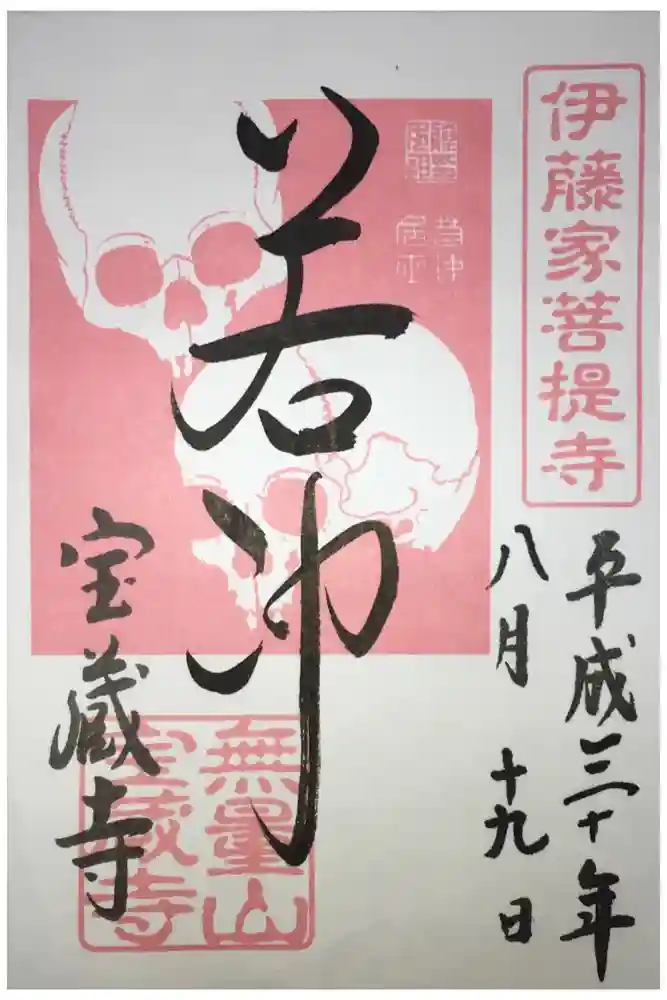 伊藤家菩提寺
平成三十年
八月 十九日
若冲
宝蔵寺
無量山
宝蔵寺